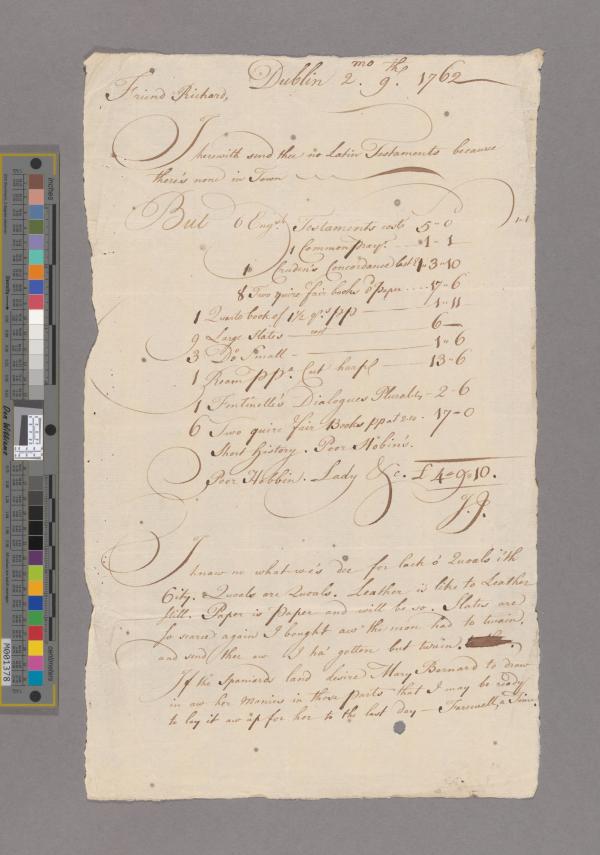 Dublin 2.mo 9th. 1762
Friend Richard,
I herewith send thee no Latin Testaments because
there's none in Town
But 6 Engsh. Testaments cost 5-0
1 Common prayr. 1-1
1 Cruden's Concordance last Ed 1-3-10
8 Two quire fair books d'o paper .... 17-6
1 Quarto book of 1½ qrs pp 1-11
9 Large Slates 6—
3 Do Small 1-6
1 Ream pp a Cut half 13-6
1 Fontinelle's Dialogues Plurality 2-6
6 Two quire fair Books pp at 2.10. 17-0
Short History. Poor Robin's.
Poor Robbin. Lady &c. £ 4-9-10.
J.J.
I know no what we's doe for lack o' Quoals i'th
City. Quoals are Quoals. Leather is like to Leather
still. Paper is Paper and will be so. Slates are
so scarce again I bought aw the mon had to twain.
and send thee aw I ha' gotten but twain.
If the Spaniards land desire Mary Barnard to draw
in aw her Monies in those parts that I may be ready
to lay it aw up for her to the last day — Farewell, a Time.
inches
centimeters
Don Williams
M001378